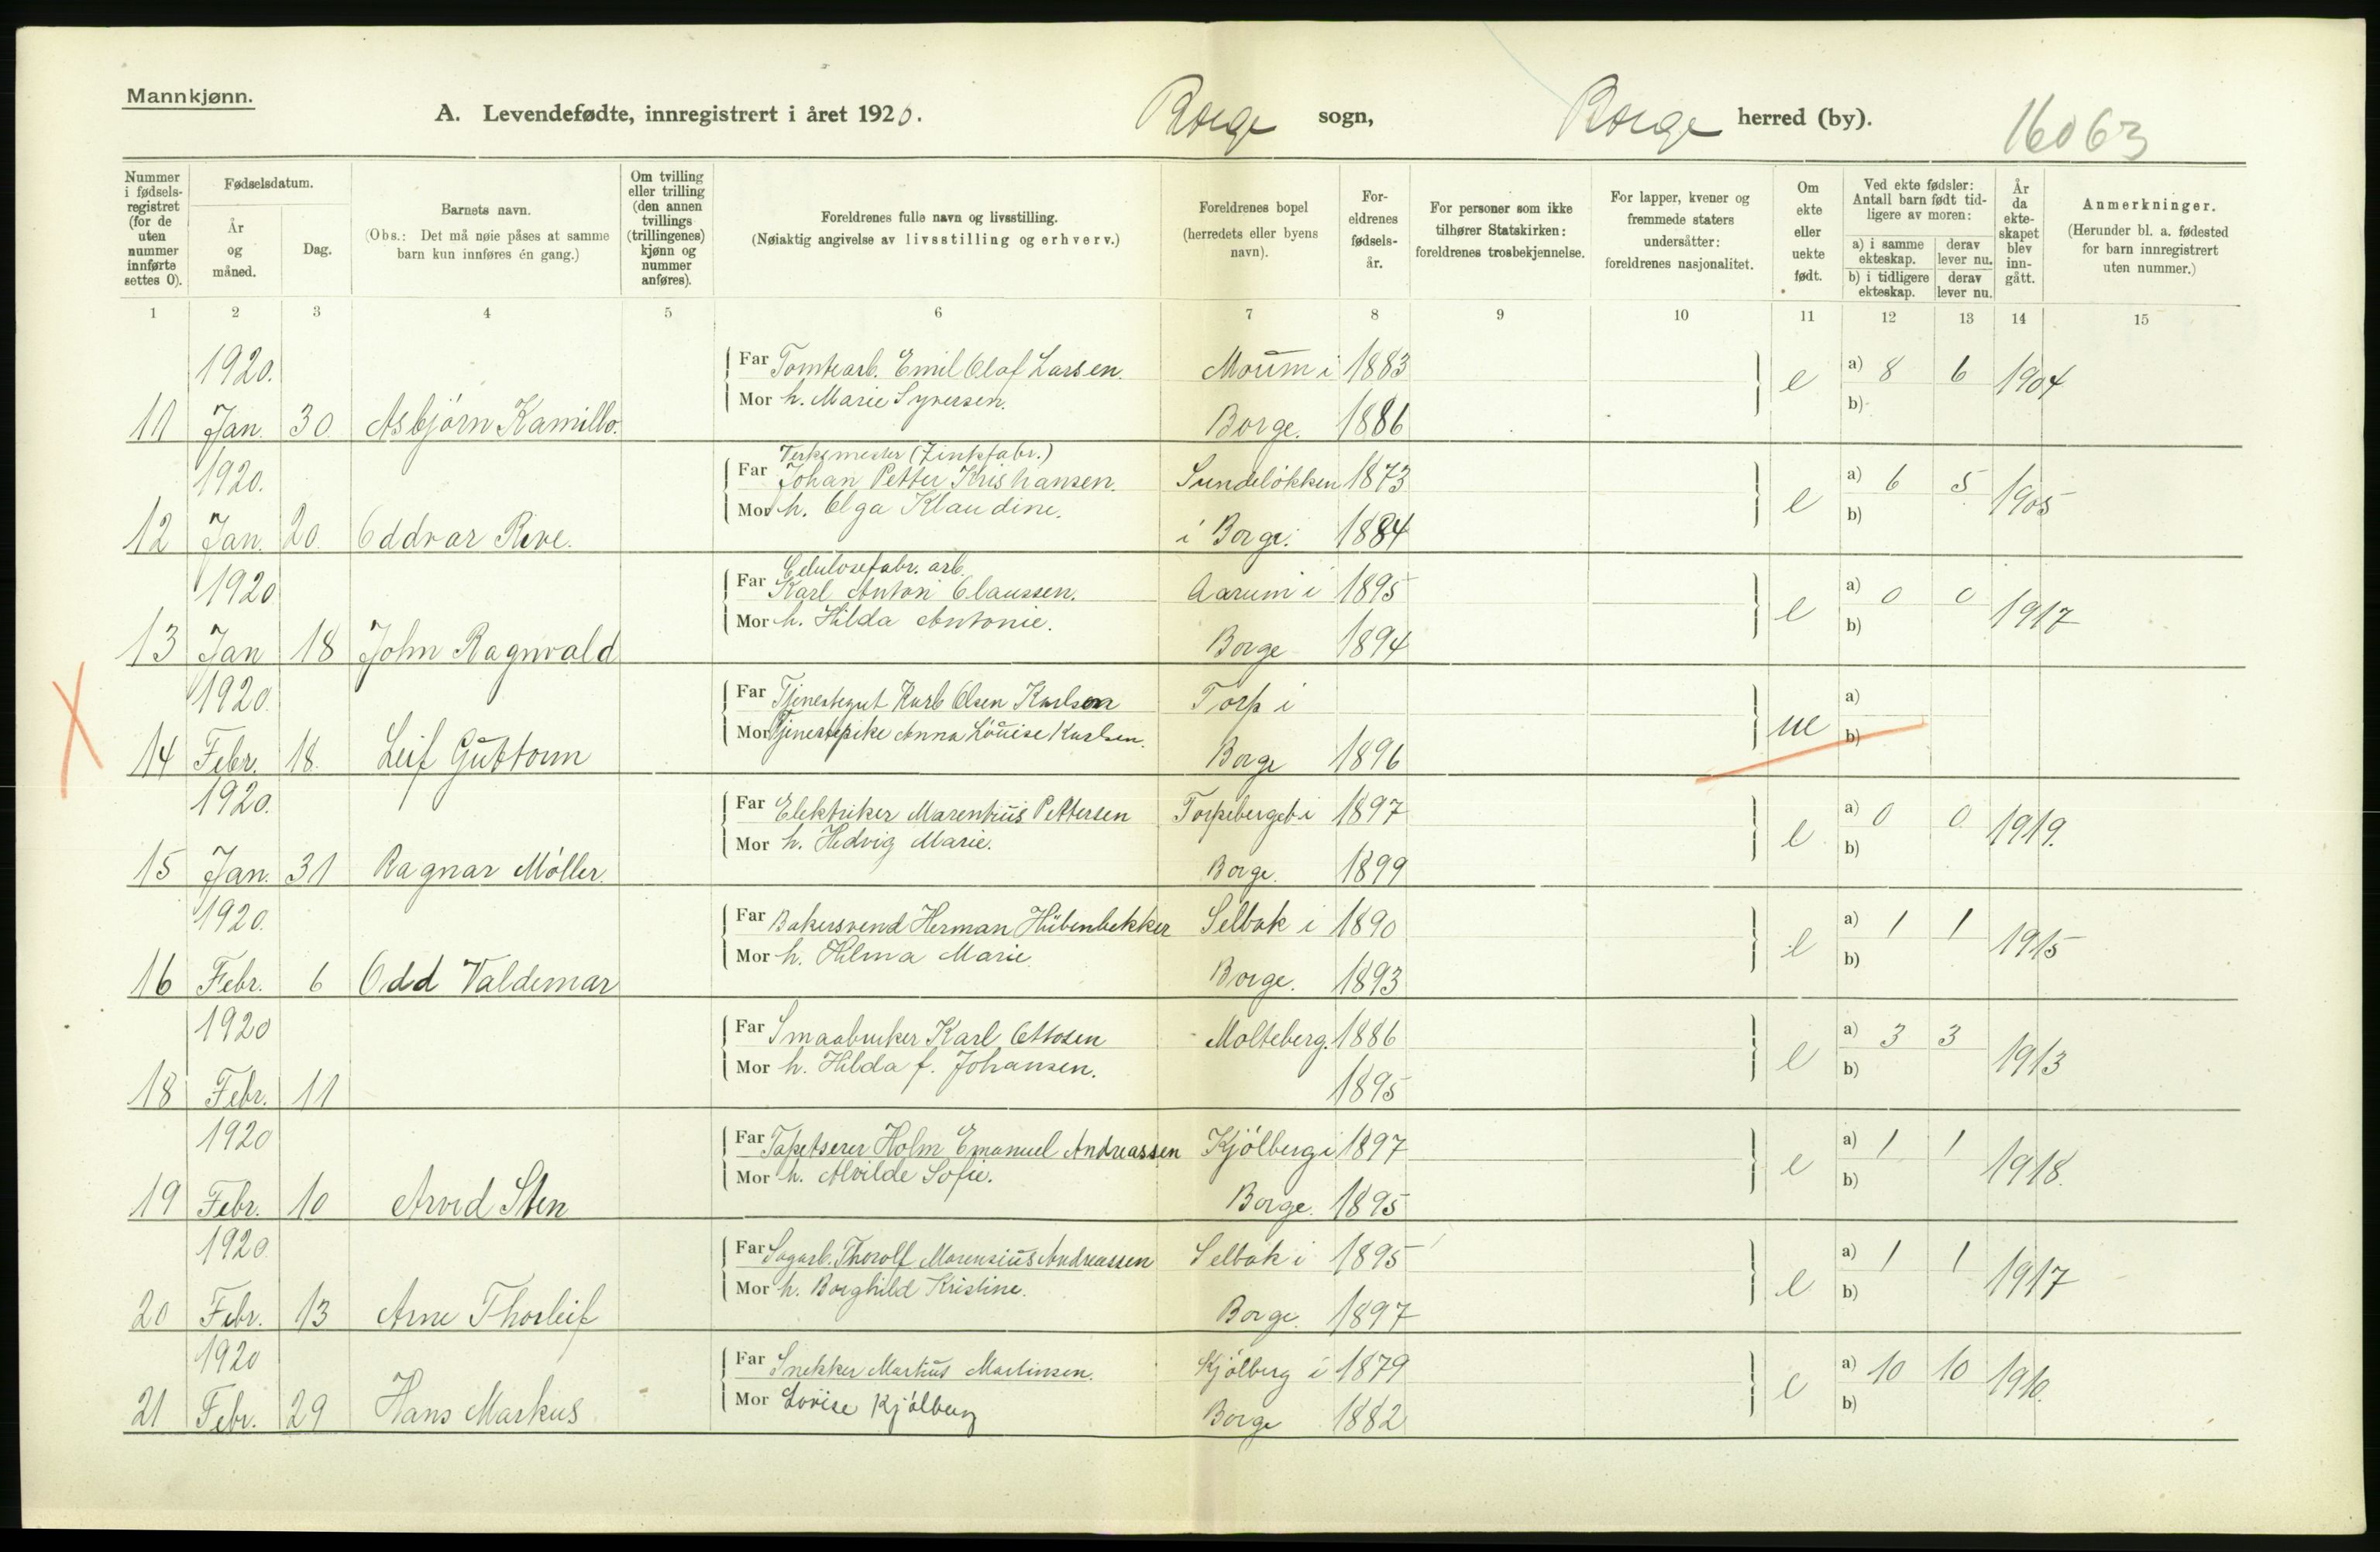 Mannkjønn.
A. Levendefødte, innregistrert i året 1920. Borge sogn, Borge herred (by). 16063
Nummer i fødsels-registret (for de uten nummer innførte settes 0).
Fødselsdatum.
År og måned.
Dag.
Barnets navn.
(Obs.: Det må nøie påses at samme barn kun innføres én gang.)
Om tvilling eller trilling (den annen tvillings (trillingenes) kjønn og nummer anføres).
Foreldrenes fulle navn og livsstilling.
(Nøiaktig angivelse av livsstilling og erhverv.)
Foreldrenes bopel (herredets eller byens navn).
For-eldrenes fødsels-år.
For personer som ikke tilhører Statskirken: foreldrenes trosbekjennelse.
For lapper, kvener og fremmede staters undersåtter: foreldrenes nasjonalitet.
Om ekte eller uekte født.
Ved ekte fødsler: Antall barn født tid-ligere av moren:
a) i samme ekteskap. derav lever nu.
b) i tidligere ekteskap. derav lever nu.
År da ekte-skapet blev inn-gått.
Anmerkninger.
(Herunder bl. a. fødested for barn innregistrert uten nummer.)
1 2 3 4 5 6 7 8 9 10 11 12 13 14 15
1920. Far Tomtearb. Emil Olaf Larsen. Moum i 1883 e a) 8 6 1904
Mor h. Marie Syversen. b)
11 Jan. 30. Asbjörn Kamillo. Borge. 1886
Verksmester (Zinkfabr.)
1920. Far Johan Petter Kristiansen. Sundelökken 1873 e a) 6 5 1905
Mor h. Olga Klaudine. b)
12 Jan. 20. Oddvar Rive. i Borge. 1884
Celulosefabr. arb.
1920 Far Karl Anton Claussen. Aarum i 1895 e a) 0 0 1917
Mor h. Hilda Antonie. b)
13 Jan 18 John Ragnvald Borge 1894
1920. Far Tjenestegut Karl Olsen Karlsen Torp i ue a)
Mor Tjenestepike Anna Lovise Karlsen. b)
14 Febr. 18. Leif Guttorm Borge 1896
1920. Far Elektriker Marentius Pettersen Torpebergeti 1897 e a) 0 0 1919.
Mor h. Hedvig Marie. b)
15 Jan. 31 Ragnar Möller. Borge. 1899
1920. Far Bakersvend Herman Hübenbekker Selbak i 1890 e a) 1 1 1915
Mor h. Hilma Marie. b)
16 Febr. 6 Odd Valdemar Borge. 1893
1920 Far Smaabruker Karl Ottosen Molteberg. 1886 e a) 3 3 1913
Mor h. Hilda f. Johansen. b)
18 Febr. 11 1895
1920 Far Tapetserer Holm Emanuel Andreassen Kjölberg i 1897 e a) 1 1 1918.
Mor h. Alvilde Sofie. b)
19 Febr. 10 Arvid Sten Borge. 1895
1920. Far Sagarb. Thorolf Marensius Andreassen Selbak i 1895 e a) 1 1 1917
Mor h. Borghild Kristine. b)
20 Febr. 13 Arne Thorleif Borge. 1897
1920 Far Snekker Martius Martinsen. Kjölberg i 1879 e a) 10 10 1910.
Mor Lovise Kjölberg b)
21 Febr. 29 Hans Markus Borge 1882